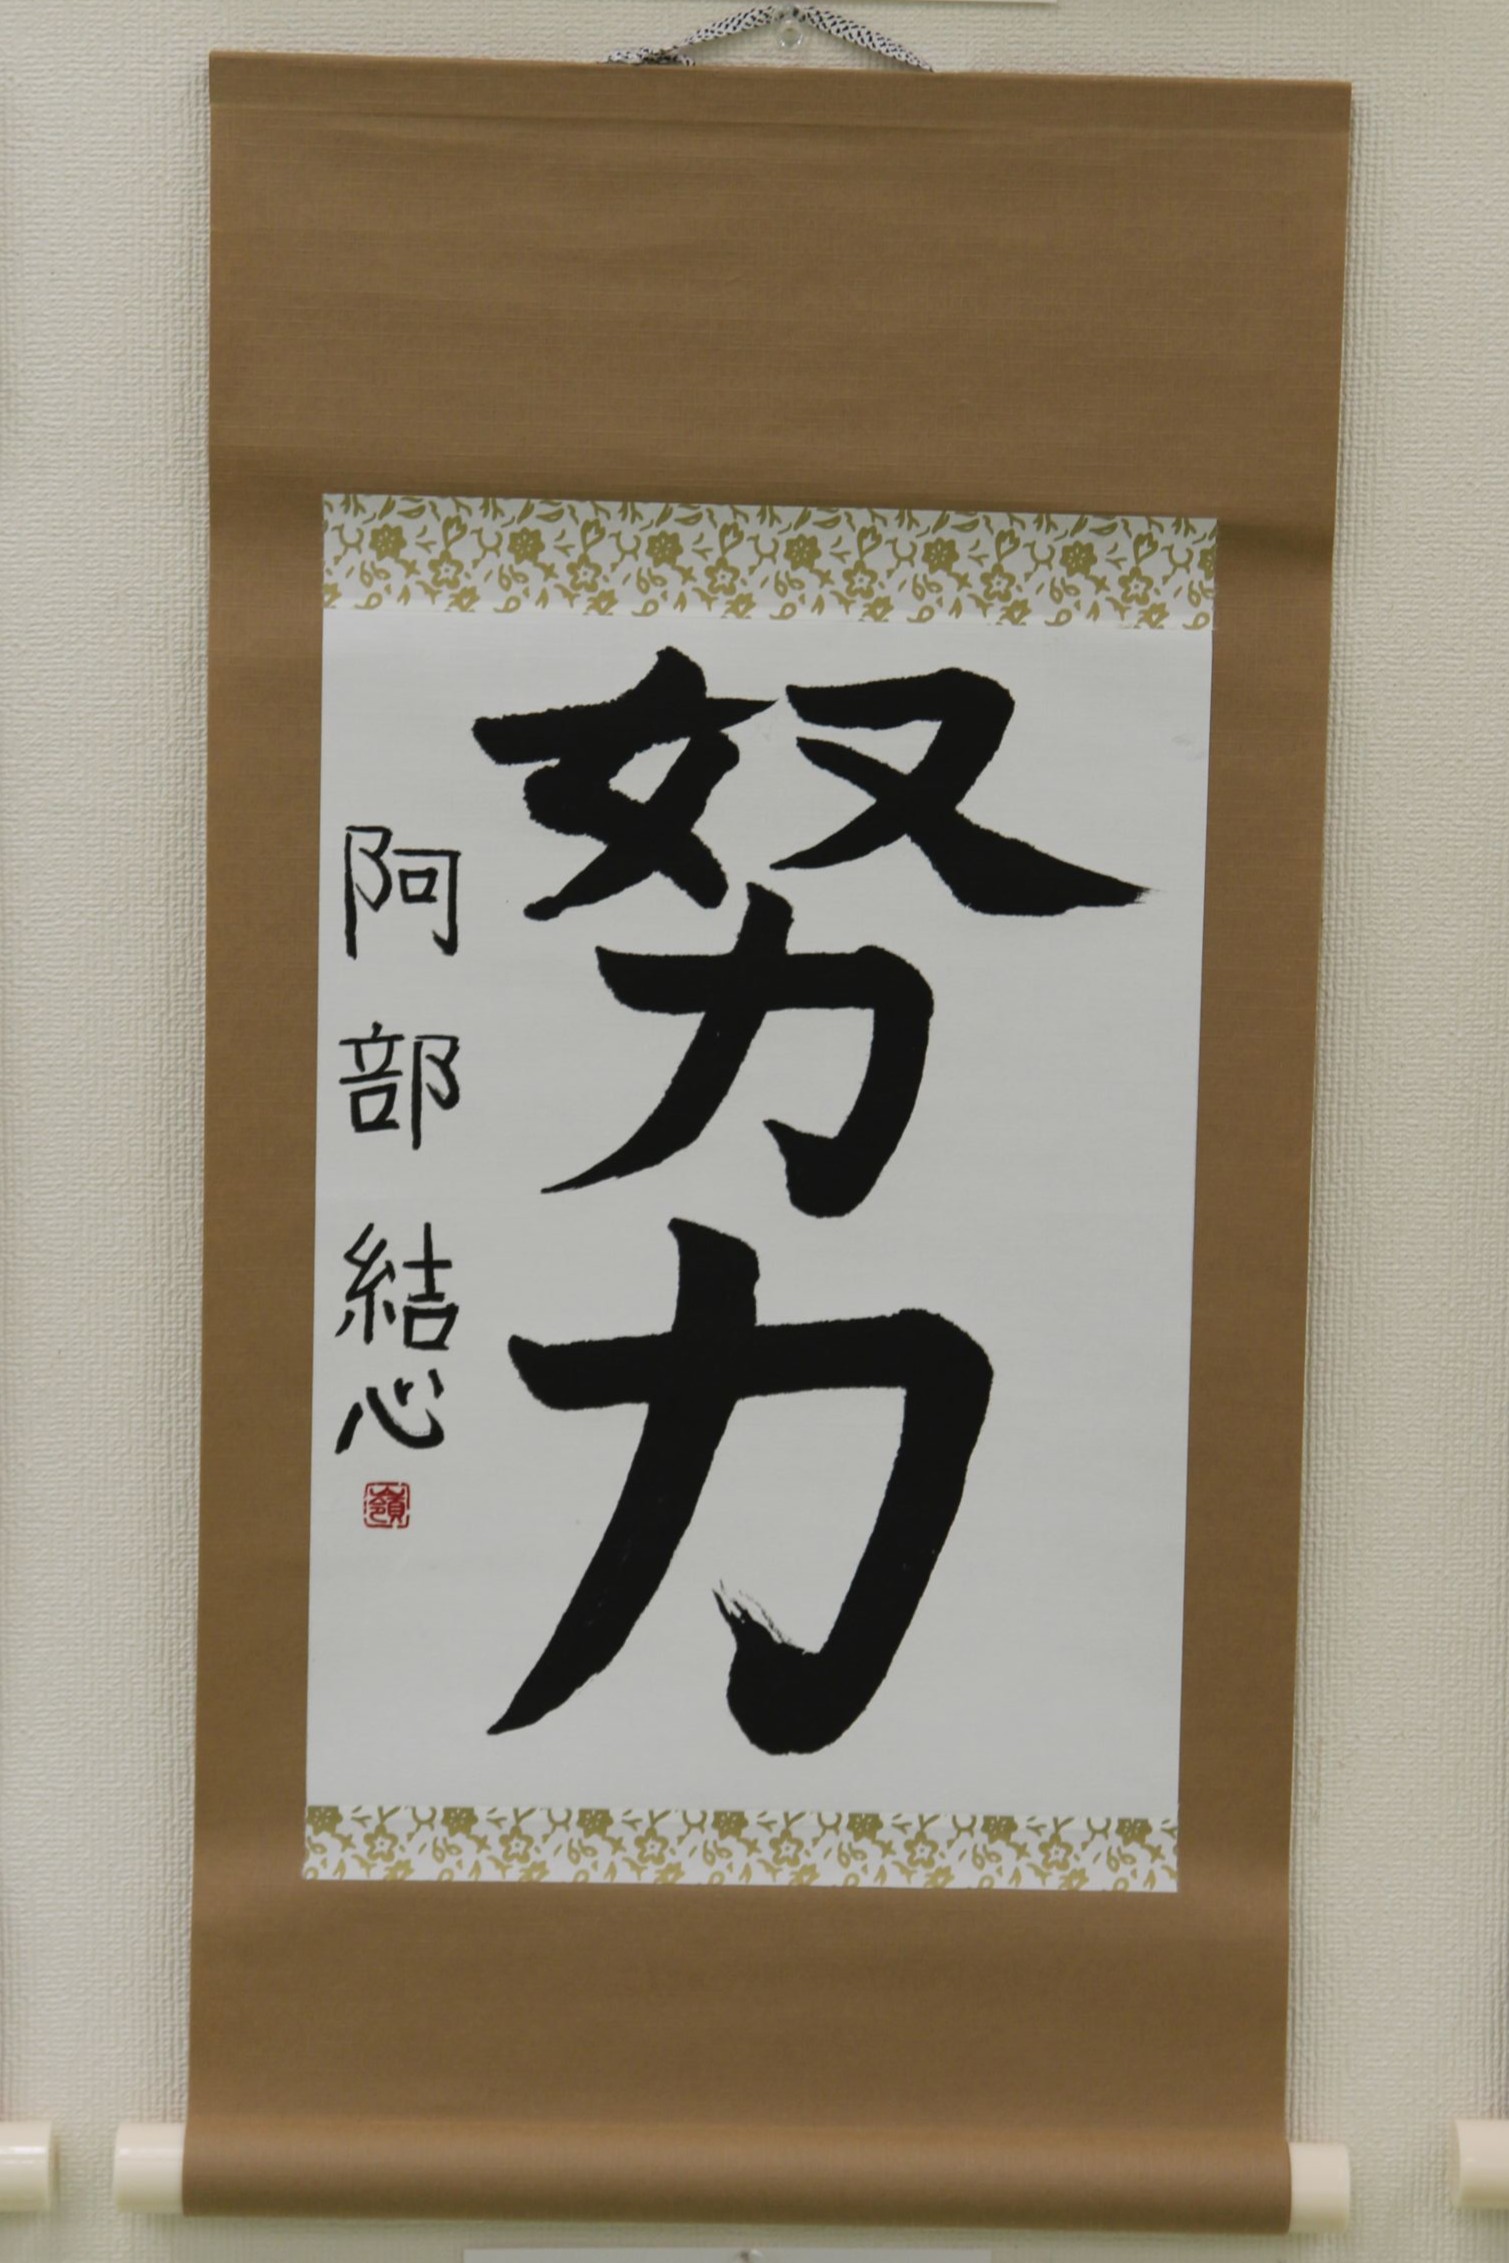 努力
阿部結心
嶺